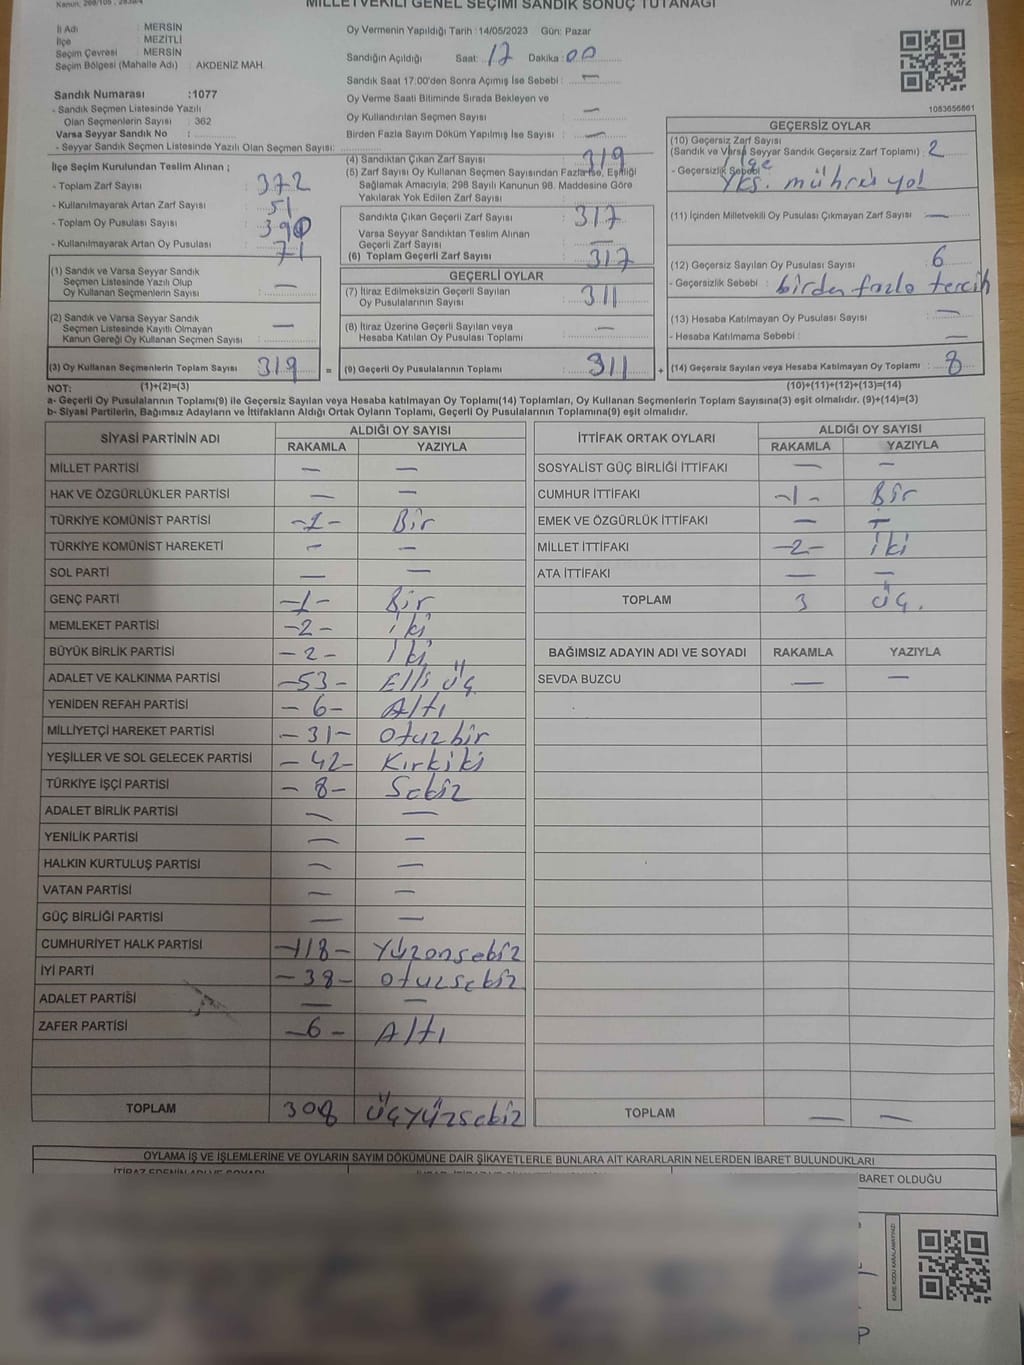 MİLLETVEKİLİ GENEL SEÇİMİ SANDIK SONUÇ TUTANAĞI
M/2
İl Adı : MERSİN
İlçe : MEZİTLİ
Seçim Çevresi : MERSİN
Seçim Bölgesi (Mahalle Adı) : AKDENİZ MAH.
Sandık Numarası :1077
- Sandık Seçmen Listesinde Yazılı
Olan Seçmenlerin Sayısı : 362
Varsa Seyyar Sandık No :
- Seyyar Sandık Seçmen Listesinde Yazılı Olan Seçmen Sayısı:
İlçe Seçim Kurulundan Teslim Alınan ;
- Toplam Zarf Sayısı : 372
- Kullanılmayarak Artan Zarf Sayısı : 51
- Toplam Oy Pusulası Sayısı : 390
- Kullanılmayarak Artan Oy Pusulası : 71
(1) Sandık ve Varsa Seyyar Sandık
Seçmen Listesinde Yazılı Olup
Oy Kullanan Seçmenlerin Sayısı : —
(2) Sandık ve Varsa Seyyar Sandık
Seçmen Listesinde Kayıtlı Olmayan
Kanun Gereği Oy Kullanan Seçmen Sayısı : —
(3) Oy Kullanan Seçmenlerin Toplam Sayısı : 319 =
Oy Vermenin Yapıldığı Tarih : 14/05/2023 Gün: Pazar
Sandığın Açıldığı Saat: 17 Dakika: 00
Sandık Saat 17:00'den Sonra Açımış İse Sebebi : —
Oy Verme Saati Bitiminde Sırada Bekleyen ve
Oy Kullandırılan Seçmen Sayısı : —
Birden Fazla Sayım Döküm Yapılmış İse Sayısı : —
(4) Sandıktan Çıkan Zarf Sayısı : 319
(5) Zarf Sayısı Oy Kullanan Seçmen Sayısından Fazla İse, Eşitliği
Sağlamak Amacıyla, 298 Sayılı Kanunun 98. Maddesine Göre
Yakılarak Yok Edilen Zarf Sayısı :
Sandıkta Çıkan Geçerli Zarf Sayısı : 317
Varsa Seyyar Sandıktan Teslim Alınan
Geçerli Zarf Sayısı : —
(6) Toplam Geçerli Zarf Sayısı : 317
GEÇERLİ OYLAR
(7) İtiraz Edilmeksizin Geçerli Sayılan
Oy Pusulalarının Sayısı : 311
(8) İtiraz Üzerine Geçerli Sayılan veya
Hesaba Katılan Oy Pusulası Toplamı : —
(9) Geçerli Oy Pusulalarının Toplamı : 311 +
1083656861
GEÇERSİZ OYLAR
(10) Geçersiz Zarf Sayısı
(Sandık ve Varsa Seyyar Sandık Geçersiz Zarf Toplamı) : 2
- Geçersizlik Sebebi : İlçe
Yks. mührü yok
(11) İçinden Milletvekili Oy Pusulası Çıkmayan Zarf Sayısı : —
(12) Geçersiz Sayılan Oy Pusulası Sayısı : 6
- Geçersizlik Sebebi : birden fazla tercih
(13) Hesaba Katılmayan Oy Pusulası Sayısı : —
- Hesaba Katılmama Sebebi : —
(14) Geçersiz Sayılan veya Hesaba Katılmayan Oy Toplamı : 8
NOT: (1)+(2)=(3) (10)+(11)+(12)+(13)=(14)
a- Geçerli Oy Pusulasının Toplamı(9) ile Geçersiz Sayılan veya Hesaba katılmayan Oy Toplamı(14) Toplamları, Oy Kullanan Seçmenlerin Toplam Sayısına(3) eşit olmalıdır. (9)+(14)=(3)
b- Siyasi Partilerin, Bağımsız Adayların ve İttifakların Aldığı Ortak Oyların Toplamı, Geçerli Oy Pusulalarının Toplamına(9) eşit olmalıdır.
SİYASİ PARTİNİN ADI ALDIĞI OY SAYISI
RAKAMLA YAZIYLA
MİLLET PARTİSİ — —
HAK VE ÖZGÜRLÜKLER PARTİSİ — —
TÜRKİYE KOMÜNİST PARTİSİ -1- Bir
TÜRKİYE KOMÜNİST HAREKETİ — —
SOL PARTİ — —
GENÇ PARTİ -1- Bir
MEMLEKET PARTİSİ -2- iki
BÜYÜK BİRLİK PARTİSİ -2- İki
ADALET VE KALKINMA PARTİSİ -53- Elli üç
YENİDEN REFAH PARTİSİ -6- Altı
MİLLİYETÇİ HAREKET PARTİSİ -31- otuzbir
YEŞİLLER VE SOL GELECEK PARTİSİ -42- Kırkiki
TÜRKİYE İŞÇİ PARTİSİ -8- Sekiz
ADALET BİRLİK PARTİSİ — —
YENİLİK PARTİSİ — —
HALKIN KURTULUŞ PARTİSİ — —
VATAN PARTİSİ — —
GÜÇ BİRLİĞİ PARTİSİ — —
CUMHURİYET HALK PARTİSİ -118- Yüzonsekiz
İYİ PARTİ -38- otuzsekiz
ADALET PARTİSİ — —
ZAFER PARTİSİ -6- Altı
TOPLAM 308 üçyüzsekiz
İTTİFAK ORTAK OYLARI ALDIĞI OY SAYISI
RAKAMLA YAZIYLA
SOSYALİST GÜÇ BİRLİĞİ İTTİFAKI — —
CUMHUR İTTİFAKI -1- Bir
EMEK VE ÖZGÜRLÜK İTTİFAKI — —
MİLLET İTTİFAKI -2- iki
ATA İTTİFAKI — —
TOPLAM 3 üç.
BAĞIMSIZ ADAYIN ADI VE SOYADI RAKAMLA YAZIYLA
SEVDA BUZCU — —
TOPLAM — —
OYLAMA İŞ VE İŞLEMLERİNE VE OYLARIN SAYIM DÖKÜMÜNE DAİR ŞİKAYETLERLE BUNLARA AİT KARARLARIN NELERDEN İBARET BULUNDUKLARI
İTİRAZ EDENİN ADI VE SOYADI
BARET OLDUĞU
KARE KODU KARALAMAYINIZ!